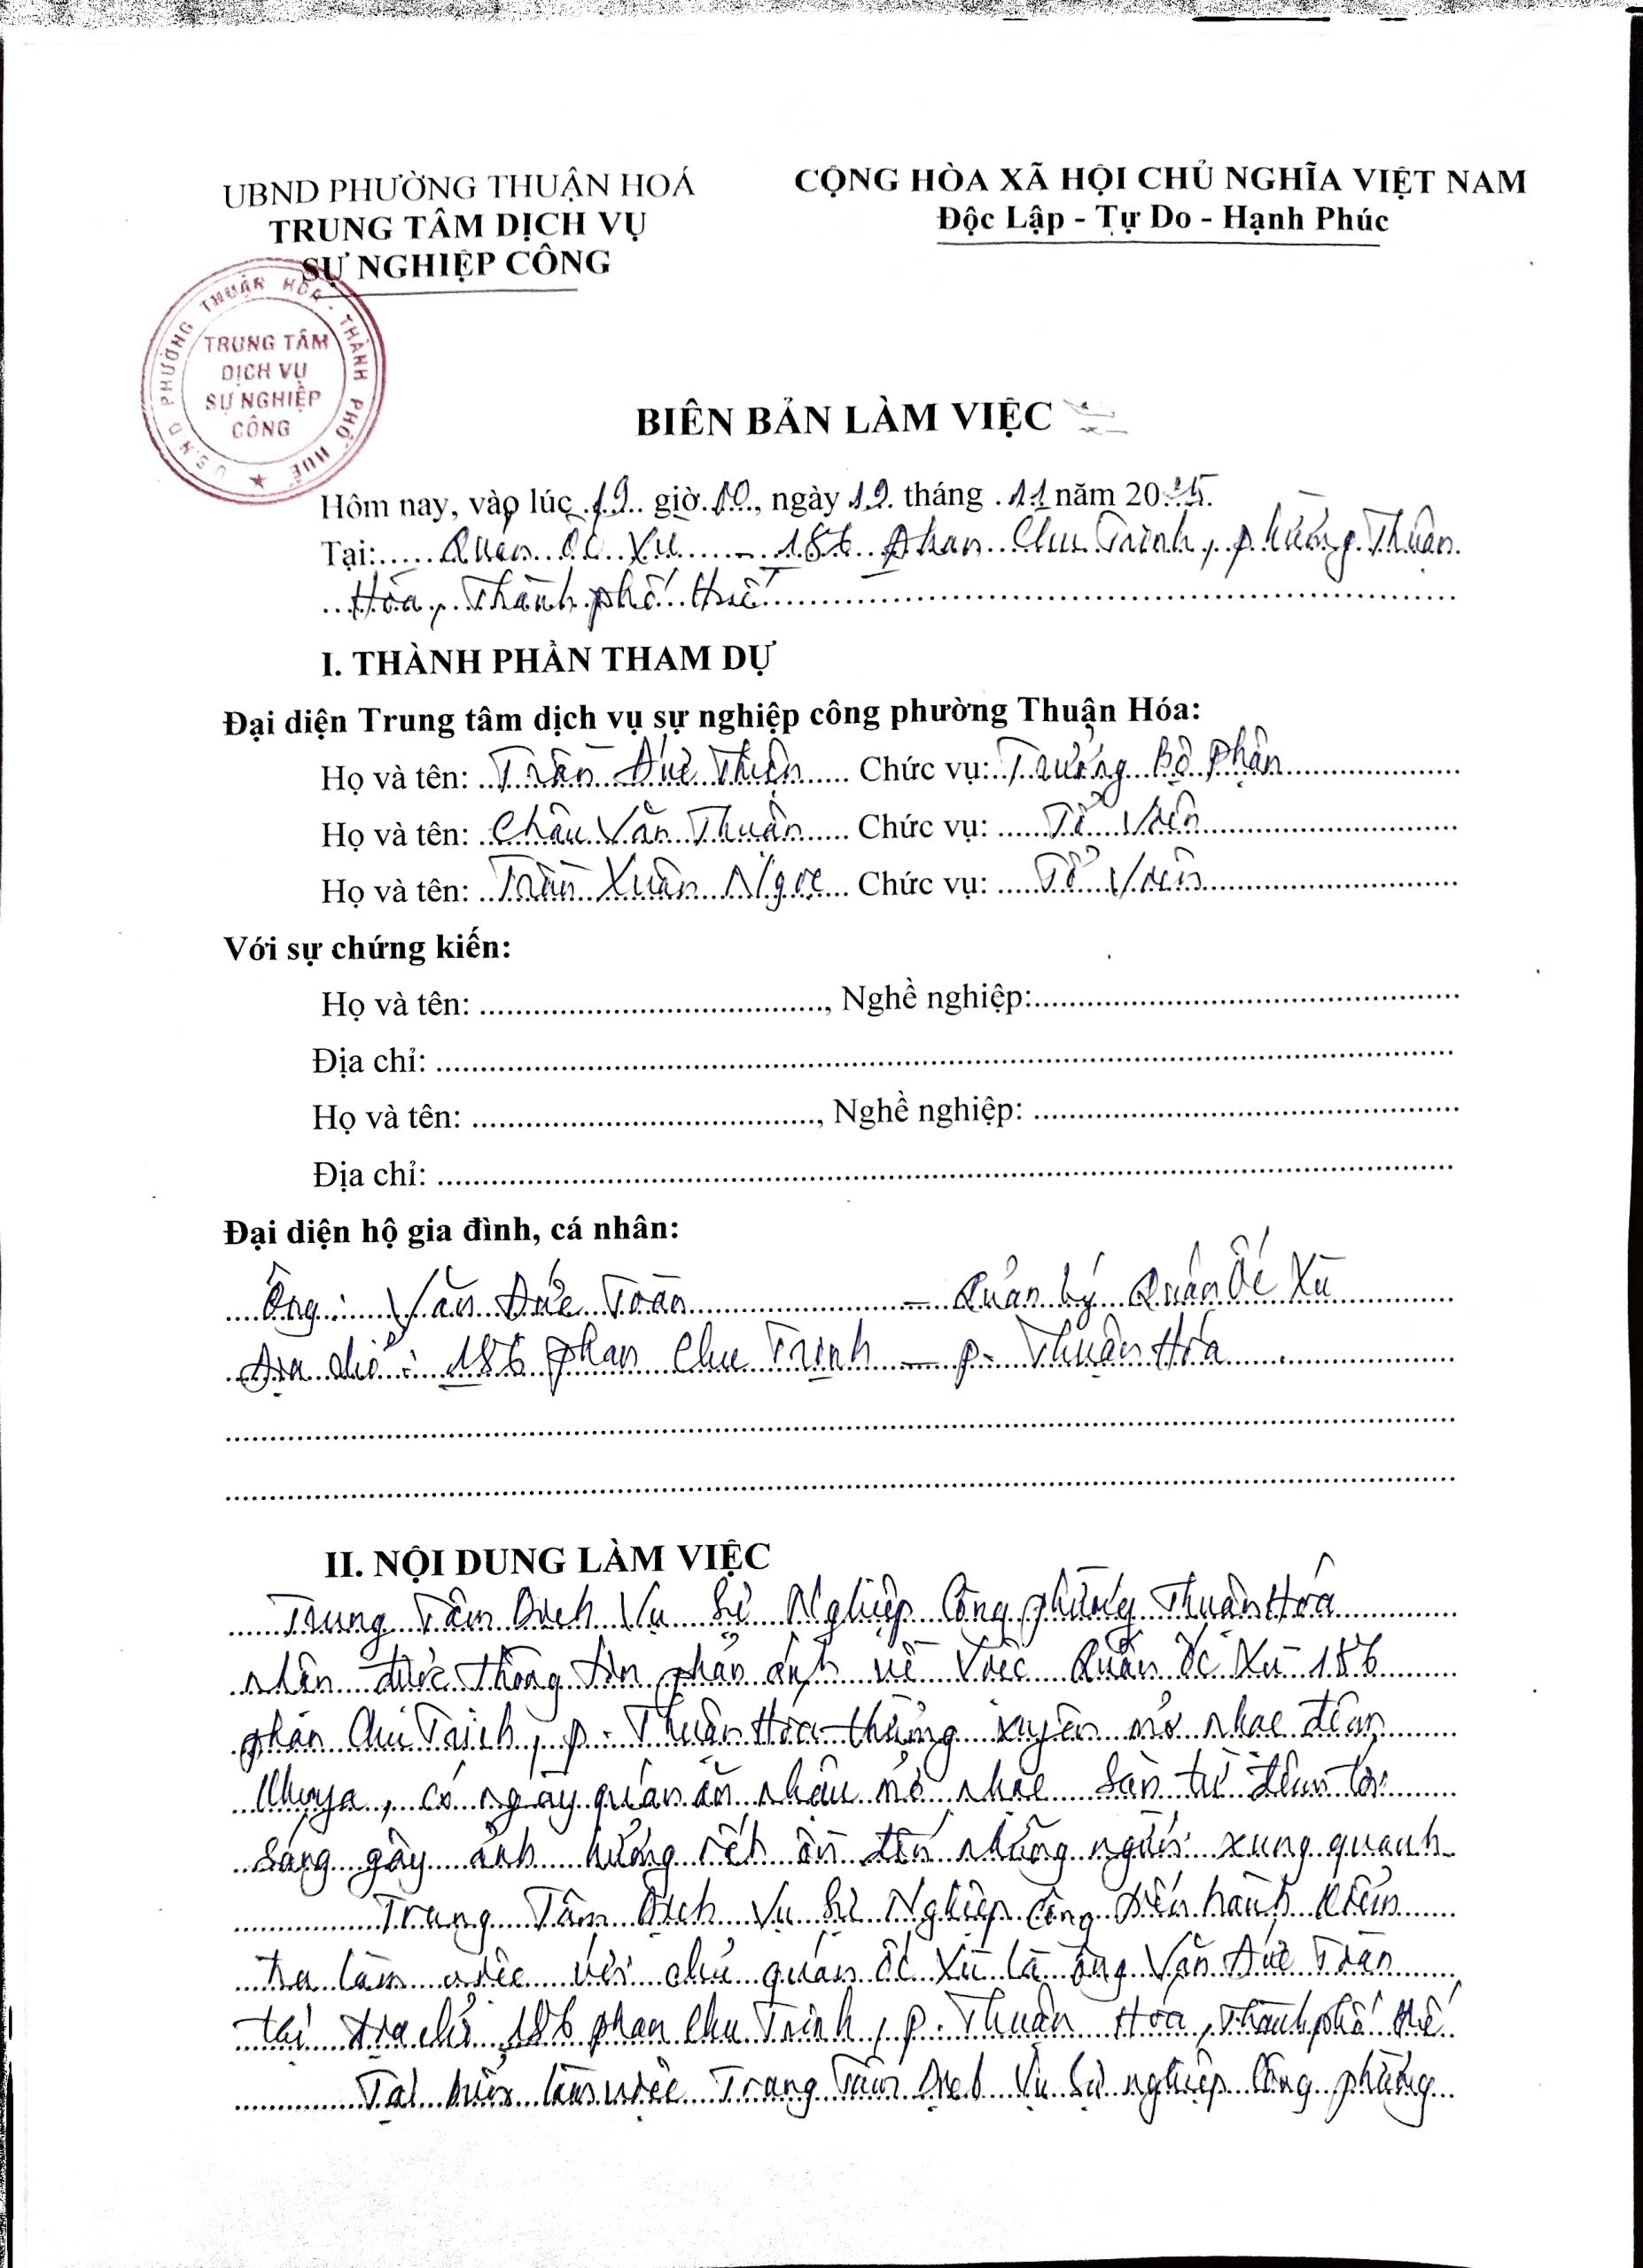 UBND PHƯỜNG THUẬN HOÁ
TRUNG TÂM DỊCH VỤ
SỰ NGHIỆP CÔNG
CỘNG HÒA XÃ HỘI CHỦ NGHĨA VIỆT NAM
Độc Lập - Tự Do - Hạnh Phúc
U.B.N.D PHƯỜNG THUẬN HÓA - THÀNH PHỐ HUẾ
TRUNG TÂM
DỊCH VỤ
SỰ NGHIỆP
CÔNG
BIÊN BẢN LÀM VIỆC
Hôm nay, vào lúc 19 giờ 10, ngày 19 tháng 11 năm 2025.
Tại: Quán Ốc Xù - 186 Phan Chu Trinh, phường Thuận
Hóa, Thành phố Huế
I. THÀNH PHẦN THAM DỰ
Đại diện Trung tâm dịch vụ sự nghiệp công phường Thuận Hóa:
Họ và tên: Trần Đức Thiện Chức vụ: Trưởng Bộ Phận
Họ và tên: Châu Văn Thuận Chức vụ: Tổ Viên
Họ và tên: Trần Xuân Ngọc Chức vụ: Tổ Viên
Với sự chứng kiến:
Họ và tên: , Nghề nghiệp:
Địa chỉ:
Họ và tên: , Nghề nghiệp:
Địa chỉ:
Đại diện hộ gia đình, cá nhân:
Ông: Văn Đức Toàn - Quản lý Quán Ốc Xù
Địa chỉ: 186 Phan Chu Trinh - P. Thuận Hóa
II. NỘI DUNG LÀM VIỆC
Trung Tâm Dịch Vụ Sự Nghiệp Công phường Thuận Hóa
nhận được thông tin phản ánh về việc Quán Ốc Xù 186
phan Chu Trinh, p. Thuận Hóa thường xuyên mở nhạc đêm
khuya, có ngày quán ăn nhậu mở nhạc sàn từ đêm tới
sáng gây ảnh hưởng tiếng ồn đến những người xung quanh
Trung Tâm Dịch Vụ Sự Nghiệp Công tiến hành kiểm
tra làm việc với chủ quán ốc Xù là ông Văn Đức Toàn
tại địa chỉ 186 phan Chu Trinh, P. Thuận Hóa, Thành phố Huế
Tại buổi làm việc Trung Tâm Dịch Vụ Sự nghiệp Công phường